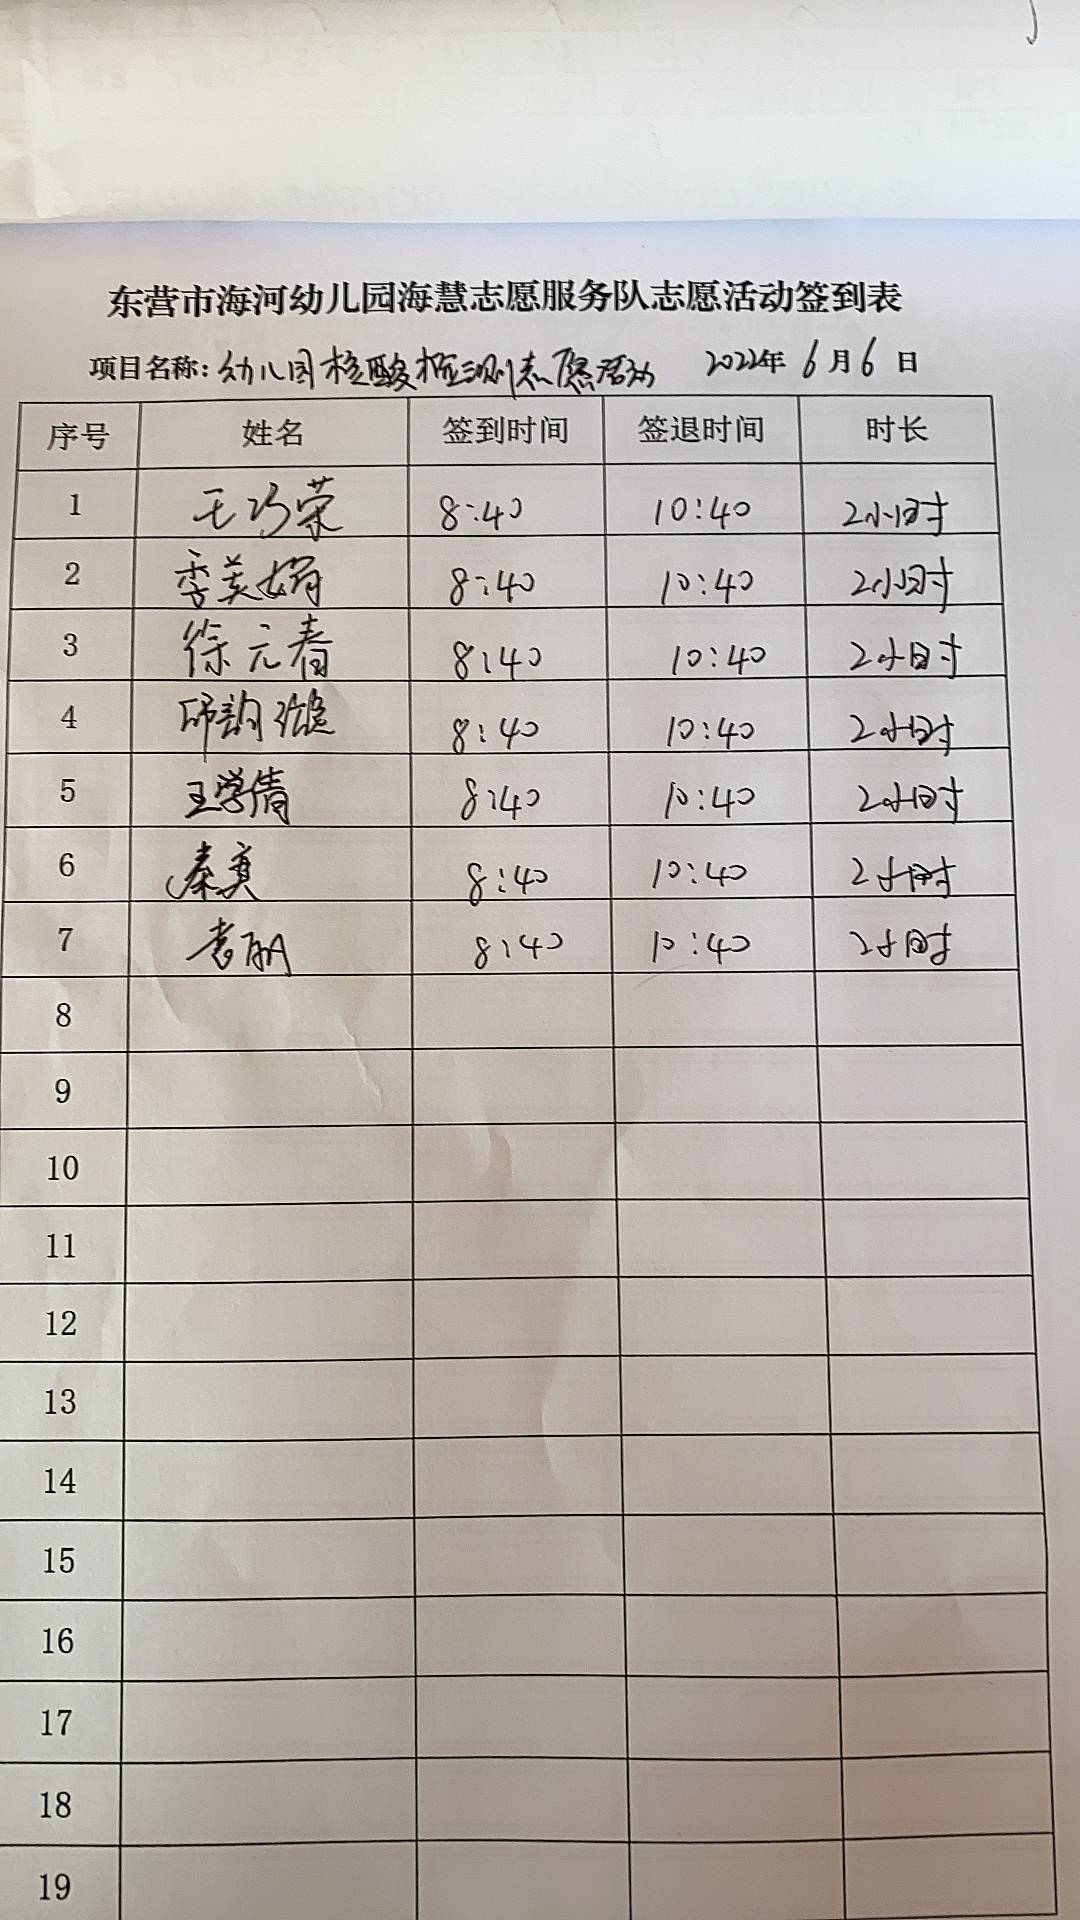 东营市海河幼儿园海慧志愿服务队志愿活动签到表
项目名称：幼儿园核酸检测志愿活动 2022年 6月6日
序号 姓名 签到时间 签退时间 时长
1 王巧荣 8:40 10:40 2小时
2 李美娟 8:40 10:40 2小时
3 徐元春 8:40 10:40 2小时
4 8:40 10:40 2小时
5 王学倩 8:40 10:40 2小时
6 秦真 8:40 10:40 2小时
7 袁丽 8:40 10:40 2小时
8
9
10
11
12
13
14
15
16
17
18
19